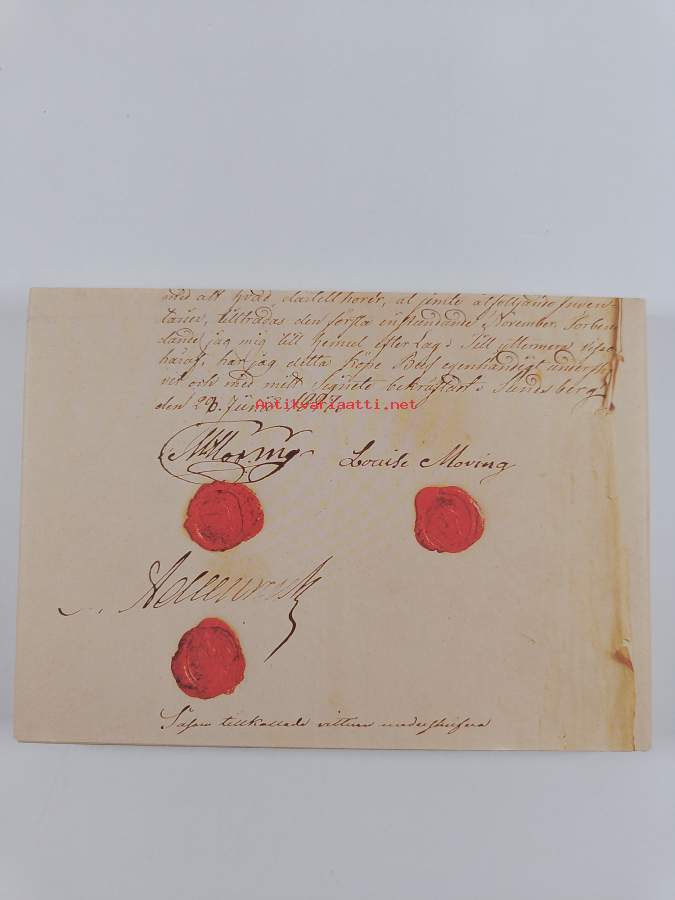 med att hvad dertill hörer, at jemte åtföljande Inven-
tarier, tillträdas den första instundande November. Förben
dande jag mig till hemul efter Lag. Till yttermera visso
häraf, har jag detta köpe Bref egenhändigt underskri-
vit och med mitt Signete bekräftat. Sundsberg
den 28. Junii
Antikvariaatti.net
Moving
Louise Moving
Såsom tillkallade vittnen underskrifva